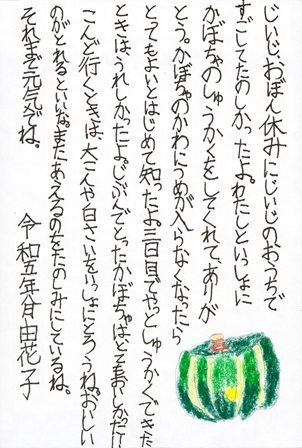 じいじ、おぼん休みにじいじのおうちで
すごしてたのしかったよ。わたしといっしょに
かぼちゃのしゅうかくをしてくれて、ありが
とう。かぼちゃのかわにつめが入らなくなったら
とってもよいとはじめて知ったよ。三日目でやっとしゅうかくできた
ときは、うれしかったよ。じぶんでとったかぼちゃはとてもおいしかった!
こんど行くときは、大こんや白さいをいっしょにとろうね。おいしい
のがとれるといいな。またあえるのをたのしみにしているね。
それまで元気でね。
令和五年八月 由花子